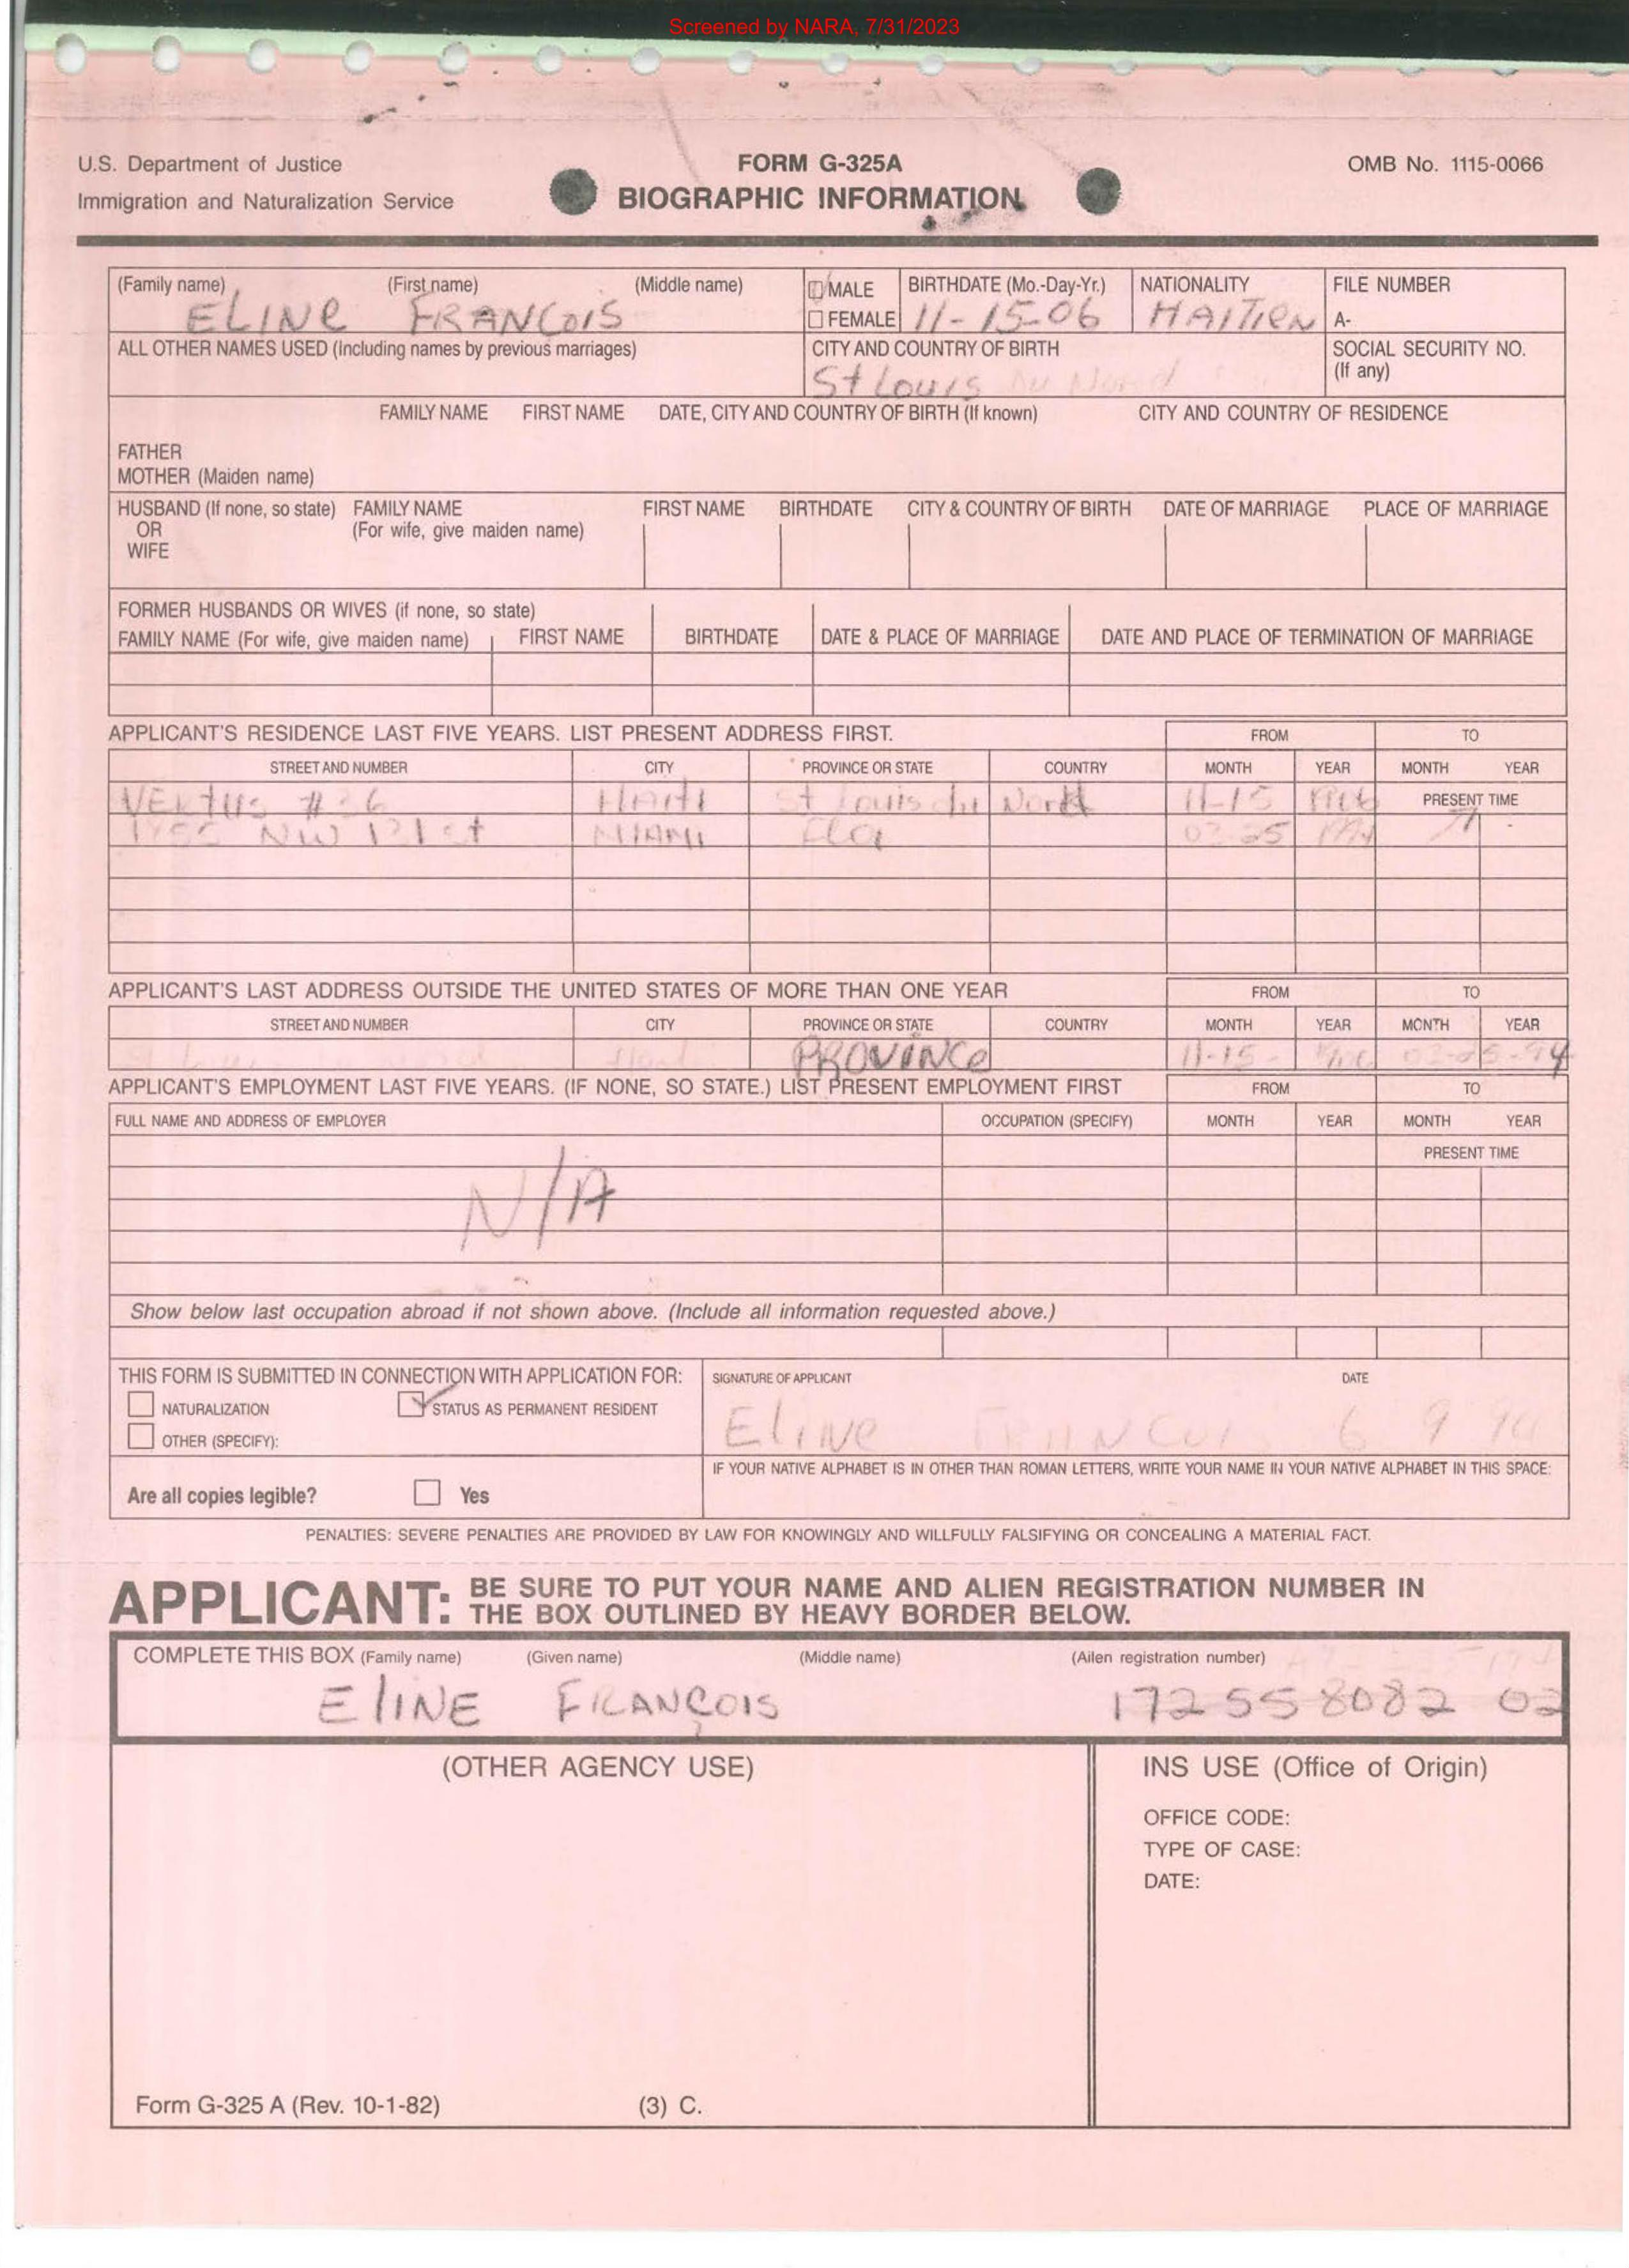 Screened by NARA, 7/31/2023
U.S. Department of Justice
Immigration and Naturalization Service
FORM G-325A
BIOGRAPHIC INFORMATION
OMB No. 1115-0066
(Family name) (First name) (Middle name)
ELINE FRANCOIS
MALE
FEMALE
BIRTHDATE (Mo.-Day-Yr.)
11-15-06
NATIONALITY
HAITIEN
FILE NUMBER
A-
ALL OTHER NAMES USED (Including names by previous marriages)
CITY AND COUNTRY OF BIRTH
St Louis Du Nord
SOCIAL SECURITY NO.
(If any)
FAMILY NAME FIRST NAME DATE, CITY AND COUNTRY OF BIRTH (If known) CITY AND COUNTRY OF RESIDENCE
FATHER
MOTHER (Maiden name)
HUSBAND (If none, so state) FAMILY NAME FIRST NAME BIRTHDATE CITY & COUNTRY OF BIRTH DATE OF MARRIAGE PLACE OF MARRIAGE
OR (For wife, give maiden name)
WIFE
FORMER HUSBANDS OR WIVES (if none, so state)
FAMILY NAME (For wife, give maiden name) FIRST NAME BIRTHDATE DATE & PLACE OF MARRIAGE DATE AND PLACE OF TERMINATION OF MARRIAGE
APPLICANT'S RESIDENCE LAST FIVE YEARS. LIST PRESENT ADDRESS FIRST. FROM TO
STREET AND NUMBER CITY PROVINCE OR STATE COUNTRY MONTH YEAR MONTH YEAR
VERTUS #36 HAITI St Louis du Nord 11-15 1906 PRESENT TIME
NW 131st MIAMI Fla 03-25
APPLICANT'S LAST ADDRESS OUTSIDE THE UNITED STATES OF MORE THAN ONE YEAR FROM TO
STREET AND NUMBER CITY PROVINCE OR STATE COUNTRY MONTH YEAR MONTH YEAR
PROVINCE 11-15- 1906 03-25-94
APPLICANT'S EMPLOYMENT LAST FIVE YEARS. (IF NONE, SO STATE.) LIST PRESENT EMPLOYMENT FIRST FROM TO
FULL NAME AND ADDRESS OF EMPLOYER OCCUPATION (SPECIFY) MONTH YEAR MONTH YEAR
PRESENT TIME
N/A
Show below last occupation abroad if not shown above. (Include all information requested above.)
THIS FORM IS SUBMITTED IN CONNECTION WITH APPLICATION FOR:
NATURALIZATION STATUS AS PERMANENT RESIDENT
OTHER (SPECIFY):
SIGNATURE OF APPLICANT DATE
ELINE FRANCOIS 6 9 94
IF YOUR NATIVE ALPHABET IS IN OTHER THAN ROMAN LETTERS, WRITE YOUR NAME IN YOUR NATIVE ALPHABET IN THIS SPACE:
Are all copies legible? Yes
PENALTIES: SEVERE PENALTIES ARE PROVIDED BY LAW FOR KNOWINGLY AND WILLFULLY FALSIFYING OR CONCEALING A MATERIAL FACT.
APPLICANT: BE SURE TO PUT YOUR NAME AND ALIEN REGISTRATION NUMBER IN
THE BOX OUTLINED BY HEAVY BORDER BELOW.
COMPLETE THIS BOX (Family name) (Given name) (Middle name) (Allen registration number)
ELINE FRANÇOIS 172 55 8082 02
(OTHER AGENCY USE)
INS USE (Office of Origin)
OFFICE CODE:
TYPE OF CASE:
DATE:
Form G-325 A (Rev. 10-1-82) (3) C.